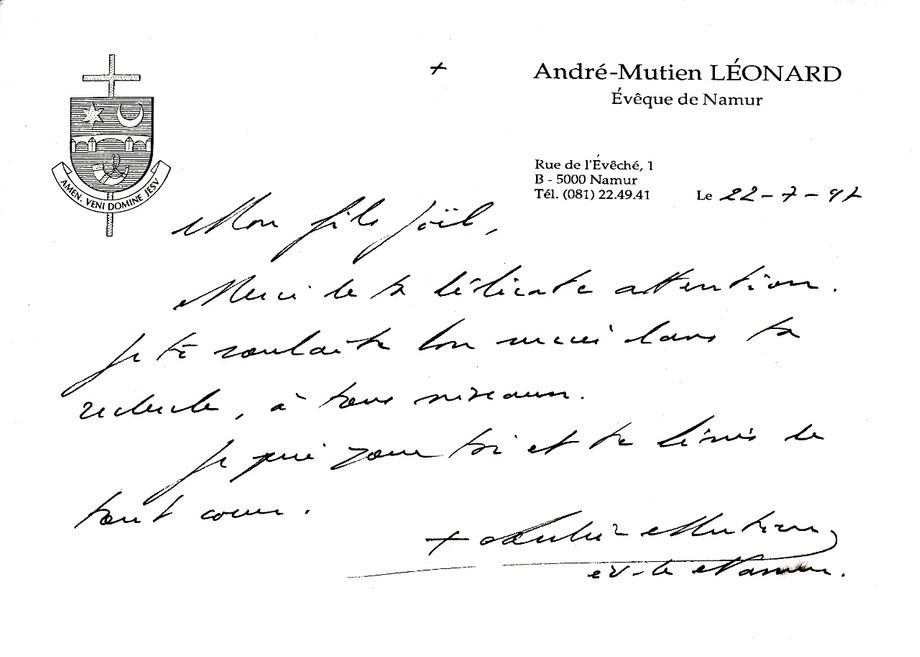 +
André-Mutien LÉONARD
Évêque de Namur
Rue de l'Évêché, 1
B - 5000 Namur
Tél. (081) 22.49.41
Le 22-7-97
AMEN. VENI DOMINE JESV
Mon fils Joël,
Merci de ta délicate attention.
Je te souhaite bon succès dans ta
recherche, à tous niveaux.
Je prie pour toi et te bénis de
tout coeur.
+ André-Mutien,
év. de Namur.